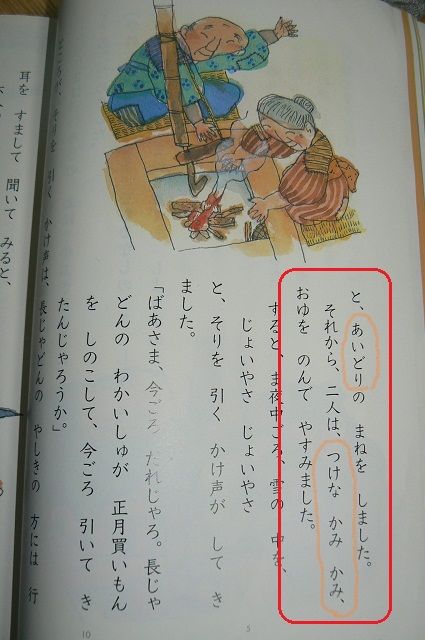 と、あいどりの まねを しました。
それから、二人は、つけな かみ かみ、
おゆを のんで やすみました。
すると、ま夜中ごろ、雪の 中を、
じょいやさ じょいやさ
と、そりを 引く かけ声が して き
ました。
「ばあさま、今ごろ だれじゃろ。長じゃ
どんの わかいしゅが 正月買いもん
を しのこして、今ごろ 引いて き
たんじゃろうか。」
ところが、そりを 引く かけ声は、長じゃどんの やしきの 方には 行
耳を すまして 聞いて みると、
5
10